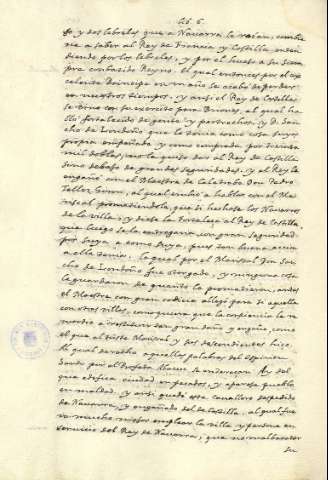 Lib. 6.
so, y dos lebreles que a Navarra la roían, combie
ne a saber al Rey de Francia y Castilla enten
diendo por los lebreles, y por el hueso a su siem
pre combatido Reyno. el qual entonces por el ex
celente Principe en un año se acabó de perder
en nuestros tiempos, y ansi el Rey de Castilla
se vino con su exercito para Briones, al qual ha
lló fortalecido de gente y pertrechos, y D. San
cho de Londoño que la tenia como cosa suya
propia empeñada y como comprada por treinta
mil doblas, no la quiso dar al Rey de Castilla
sino debajo de grandes seguridades, y el Rey le
engañó con el Maestre de Calatraba Don Pedro
Tellez Giron, al qual embió a hablar con el Ma
riscal prometiendole, que si hechase los Navarros
de la villa, y diese la fortaleza al Rey de Castilla,
que luego se la entregaria con gran seguridad
por suya, o como suya, pues con buena accion
a ella tenia. la qual por el Mariscal Don San
cho de Londoño fue otorgado, y ninguna cosa
le guardaron de quanto le prometieron, antes
el Maestre con gran codicia allegó para si aquella
con otras villas, como quiera que la conciencia le re
mordio a restituir tan gran daño y engaño, como
el que al triste Mariscal y sus descendientes hizo.
Al qual derecho aquellas palabras del Espiritu
Santo por el Profeta Abacuc se enderezan: Ay del
que edifica ciudad en pecados, y apareja pueblo
en maldad. y ansi quedó este caballero despedido
de Navarra, y engañado del de Castilla, al qual fue
ra mucho mejor emplear la villa y persona en
servicio del Rey de Navarra, que no malbaratar
su